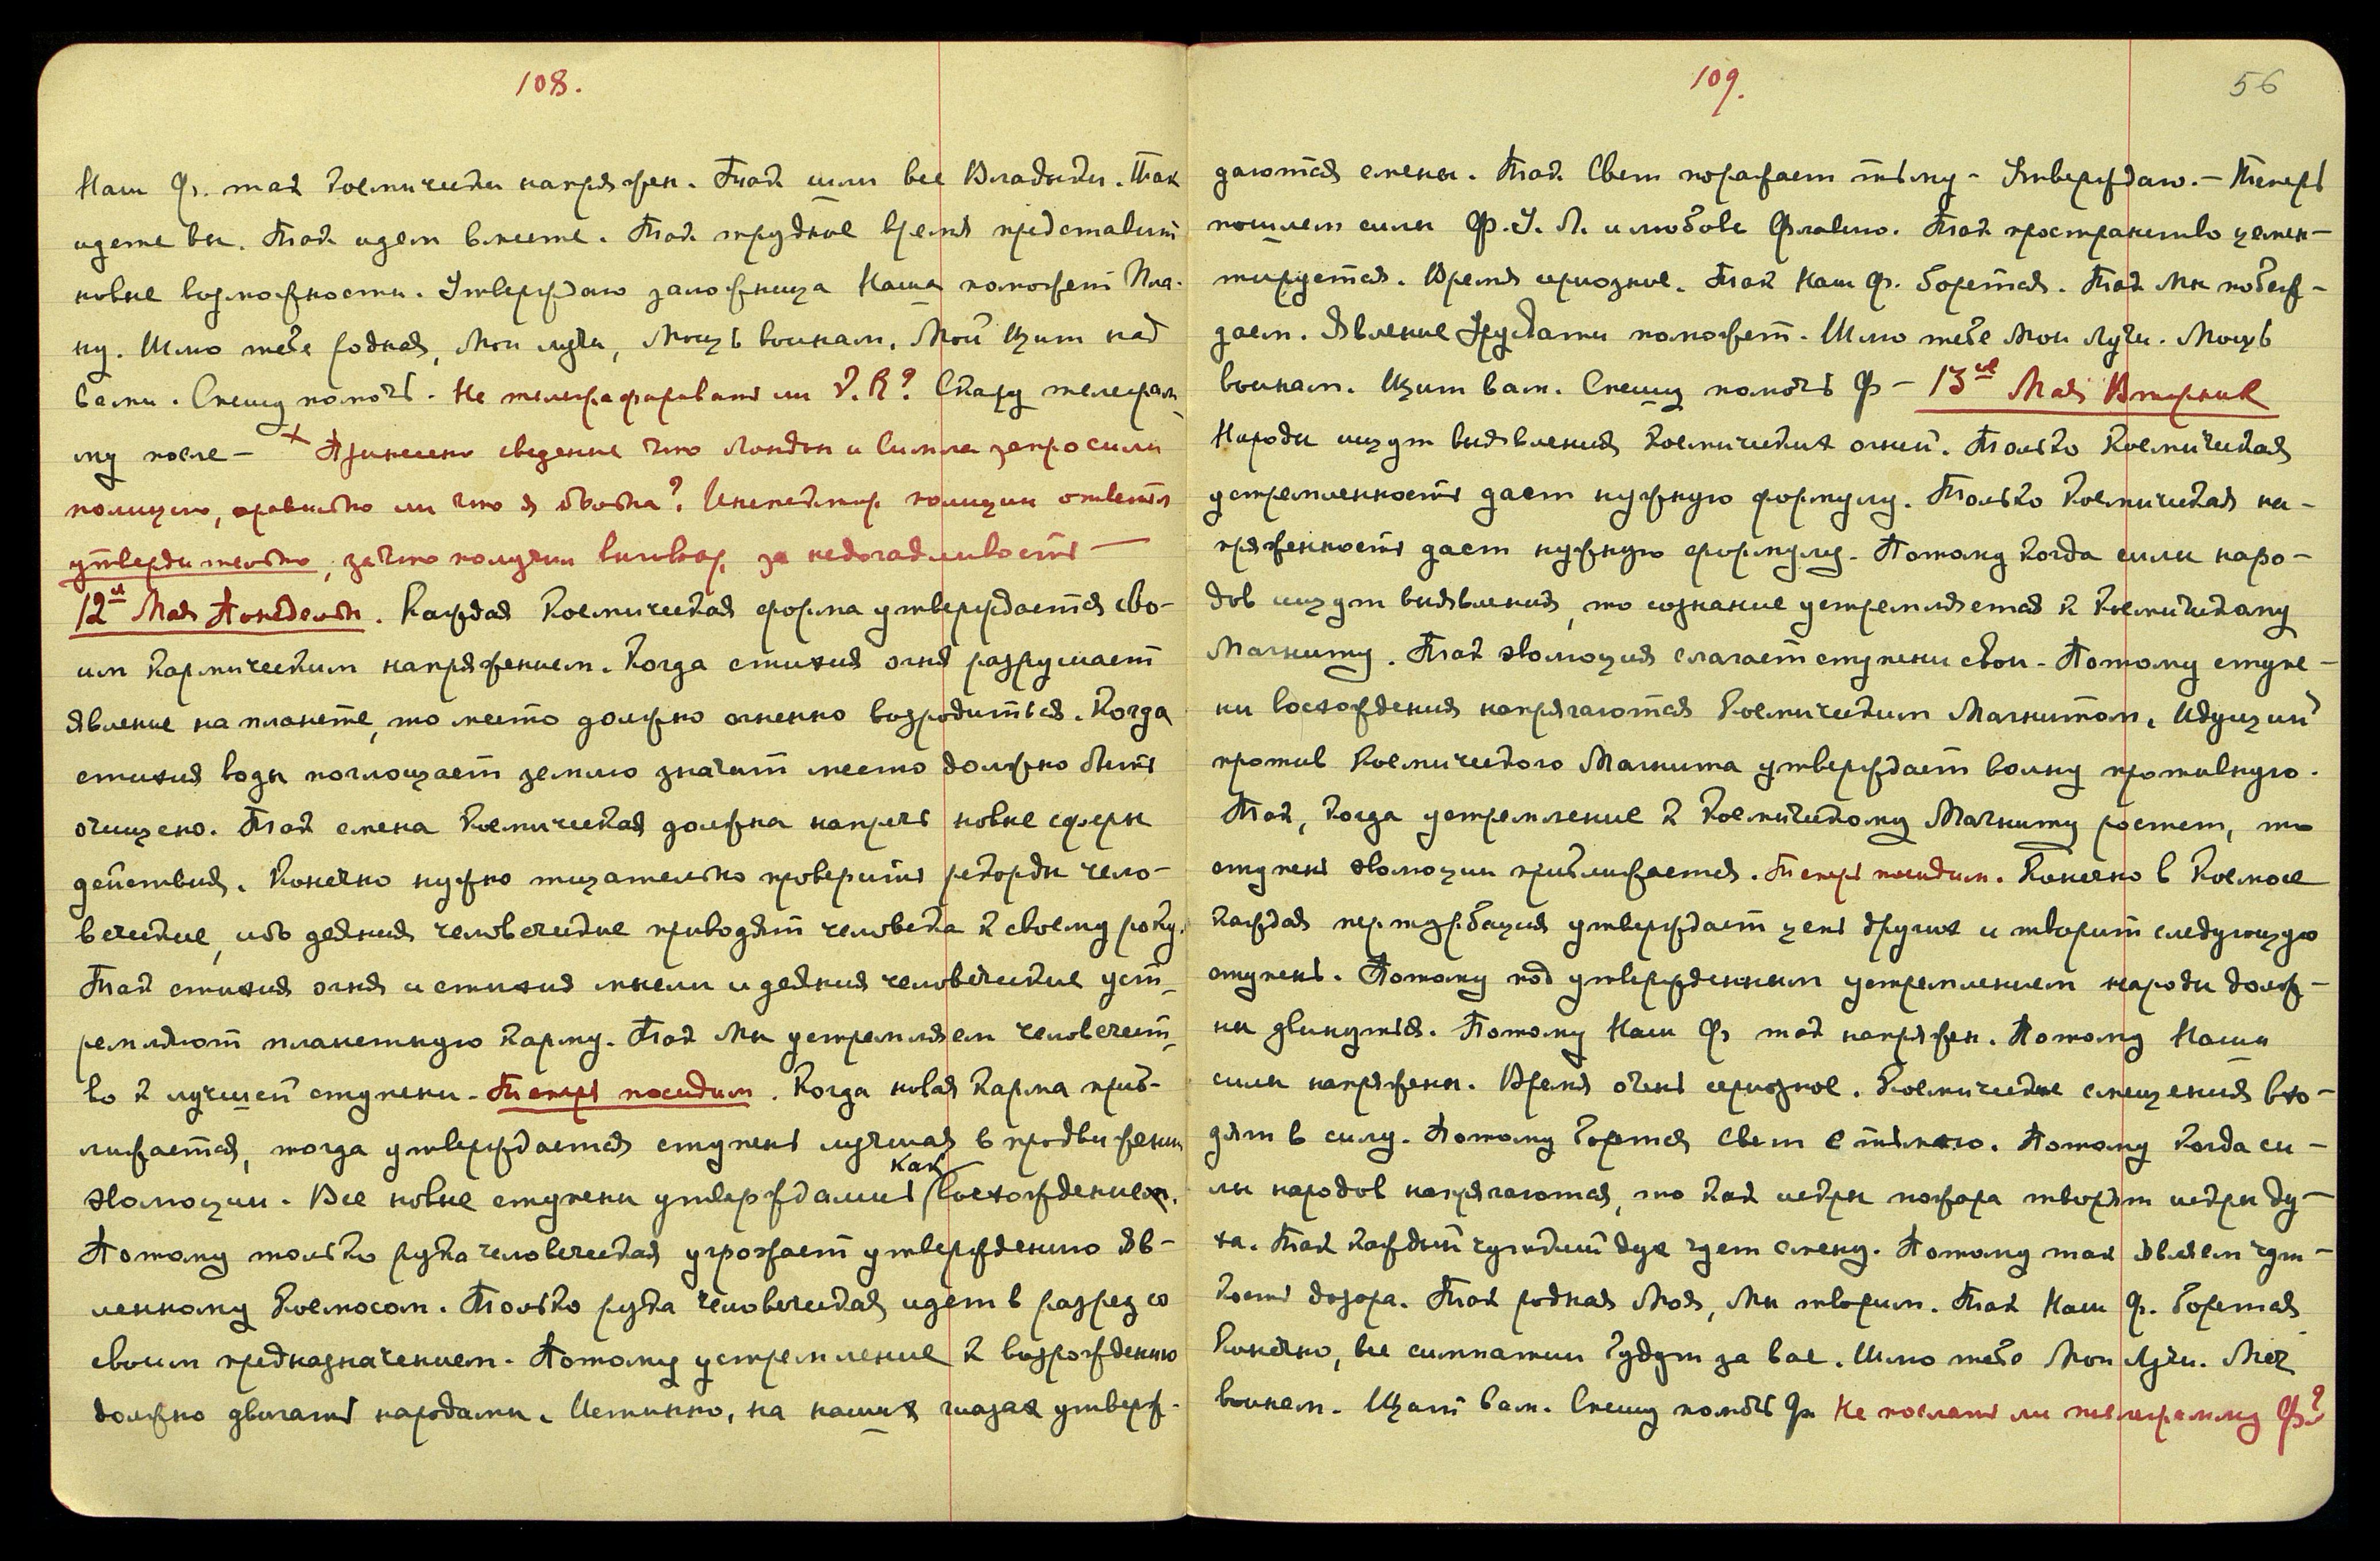 108.
Наш Ф. так космически напряжен. Так шли все Владыки. Так
идете вы. Так идем вместе. Так трудное время представит
новые возможности. Утверждаю заложница Наша поможет Пла-
ну. Шлю тебе родная, Мои лучи, Мощь воинам, Мой Щит над
вами. Спешу помочь. Не телеграфировать ли ? Скажу телеграм-
му после — × Принесено сведение что Лондон и Симла запросили
полицию, правильно ли что я больна? Инспектор полиции ответил
утвердительно, за что получил выговор за недогадливость —
12ое Мая Понедельн. Каждая Космическая форма утверждается сво-
им кармическим напряжением. Когда стихия огня разрушает
явление на планете, то место должно огненно возродиться. Когда
стихия воды поглощает землю значит место должно быть
очищено. Так смена Космическая должна напречь новые сферы
действия. Конечно нужно тщательно проверить рекорды чело-
веческие, ибо деяния человеческие приводят человека к своему року.
Так стихия огня и стихия мысли и деяния человеческие уст-
ремляют планетную карму. Так Мы устремляем человечест-
во к лучшей ступени. Теперь посидим. Когда новая карма приб-
лижается, тогда утверждается ступень лучшая в продвижении
эволюции. Все новые ступени утверждались как восхождение.
Потому только рука человеческая угрожает утверждению яв-
ленному Космосом. Только рука человеческая идет в разрез со
своим предназначением. Потому устремление к возрождению
должно двигать народами. Истинно, на наших глазах утверж-
109.
56
даются смены. Так Свет поражает тьму. Утверждаю. — Теперь
пошлем силы Ф. У. Л. и любовь Флавию. Так пространство цемен-
тируется. Время серьозное. Так Наш Ф. борется. Так Мы побеж-
даем. Явление поможет. Шлю тебе Мои Лучи. Мощь
воинам. Щит вам. Спешу помочь Ф — 13ое Мая Вторник
Народы ищут выявления Космических огней. Только Космическая
устремленность дает нужную формулу. Только Космическая на-
пряженность дает нужную формулу. Потому когда силы наро-
дов ищут выявления, то сознание устремляется к Космическому
Магниту. Так эволюция слагает ступени свои. Потому ступе-
ни восхождения напрягаются Космическим Магнитом. Идущий
против Космического Магнита утверждает волну противную.
Так, когда устремление к Космическому Магниту растет, то
ступень эволюции приближается. Теперь посидим. Конечно в Космосе
каждая пертурбация утверждает цепь других и творит следующую
ступень. Потому под утвержденным устремлением народы долж-
ны двинуться. Потому Наш Ф. так напряжен. Потому Наши
силы напряжены. Время очень серьозное. Космические смещения вхо-
дят в силу. Потому борется Свет с тьмою. Потому когда си-
лы народов напрягаются, то как искры пожара творят искры ду-
ха. Так каждый чуткий дух чует смену. Потому так являем чут-
кость дозора. Так родная Моя, Мы творим. Так Наш Ф. борется.
Конечно, все симпатии будут за вас. Шлю тебе Мои Лучи. Меч
воинам. Щит вам. Спешу помочь Ф. Не послать ли телеграмму Ф.?